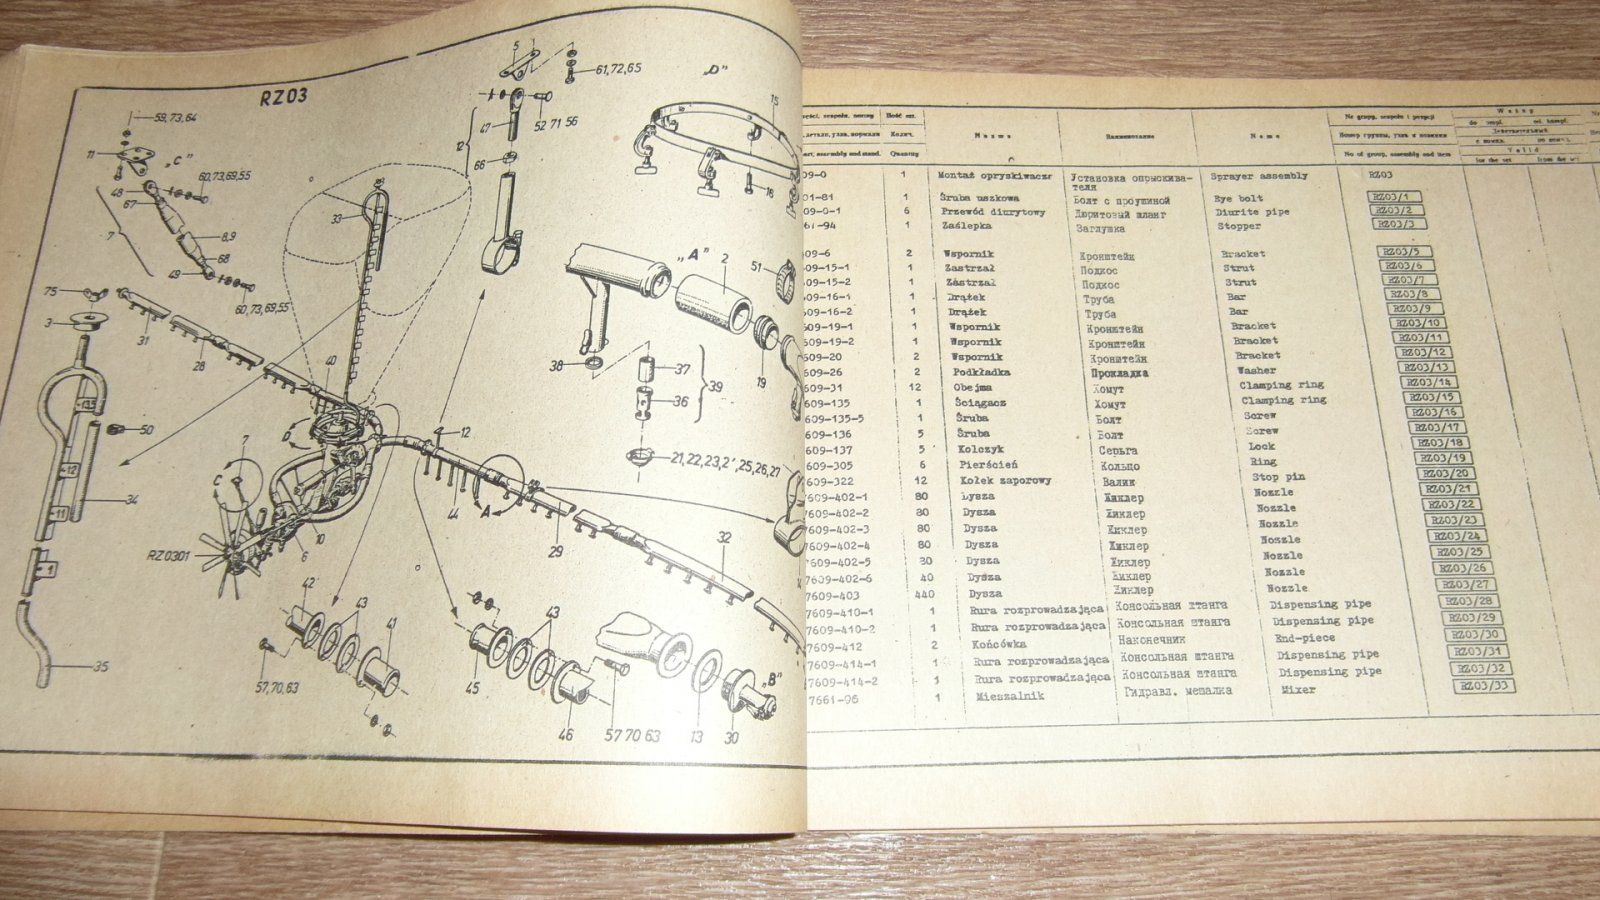 RZ03
59,73,64
11
„C"
60,73,69,55
48
67
7
8,9
68
49
60,73,69,55
75
3
31
28
40
33
5
61,72,65
„D"
15
47
52 71 56
12
66
16
„A"
2
51
38
37
39
36
19
21,22,23,2',25,26,27
13,5
50
12
34
11
1
35
7
C
D
12
44
A
29
32
10
6
RZ0301
42
43
41
57,70,63
43
45
46
57 70 63
13
30
„B"
Ilość szt.
Колич.
Quantity
Nazwa
Наименование
Name
Nr grupy, zespołu i pozycji
Номер группы, узла и позиции
No of group, assembly and item
Ważny
Valid
for the set
09-0 1 Montaż opryskiwaczr Установка опрыскива-теля Sprayer assembly RZ03
01-81 1 Śruba uszkowa Болт с проушиной Eye bolt RZ03/1
09-0-1 6 Przewód diurytowy Дюритовый шланг Diurite pipe RZ03/2
1 Zaślepka Заглушка Stopper RZ03/3
09-6 2 Wspornik Кронштейн Bracket RZ03/5
09-15-1 1 Zastrzał Подкос Strut RZ03/6
09-15-2 1 Zastrzał Подкос Strut RZ03/7
09-16-1 1 Drążek Труба Bar RZ03/8
609-16-2 1 Drążek Труба Bar RZ03/9
609-19-1 1 Wspornik Кронштейн Bracket RZ03/10
609-19-2 1 Wspornik Кронштейн Bracket RZ03/11
609-20 2 Wspornik Кронштейн Bracket RZ03/12
609-26 2 Podkładka Прокладка Washer RZ03/13
609-31 12 Obejma Хомут Clamping ring RZ03/14
609-135 1 Ściągacz Хомут Clamping ring RZ03/15
609-135-5 1 Śruba Болт Screw RZ03/16
609-136 5 Śruba Болт Screw RZ03/17
609-137 5 Kolczyk Серьга Lock RZ03/18
609-305 6 Pierścień Кольцо Ring RZ03/19
609-322 12 Kołek zaporowy Валик Stop pin RZ03/20
7609-402-1 80 Dysza Жиклер Nozzle RZ03/21
7609-402-2 80 Dysza Жиклер Nozzle RZ03/22
7609-402-3 80 Dysza Жиклер Nozzle RZ03/23
7609-402-4 80 Dysza Жиклер Nozzle RZ03/24
7609-402-5 80 Dysza Жиклер Nozzle RZ03/25
7609-402-6 40 Dysza Жиклер Nozzle RZ03/26
7609-403 440 Dysza Жиклер Nozzle RZ03/27
7609-410-1 1 Rura rozprowadzająca Консольная штанга Dispensing pipe RZ03/28
7609-410-2 1 Rura rozprowadzająca Консольная штанга Dispensing pipe RZ03/29
7609-412 2 Końcówka Наконечник End-piece RZ03/30
7609-414-1 1 Rura rozprowadzająca Консольная штанга Dispensing pipe RZ03/31
7609-414-2 1 Rura rozprowadzająca Консольная штанга Dispensing pipe RZ03/32
7661-96 1 Mieszalnik Гидравл. мешалка Mixer RZ03/33